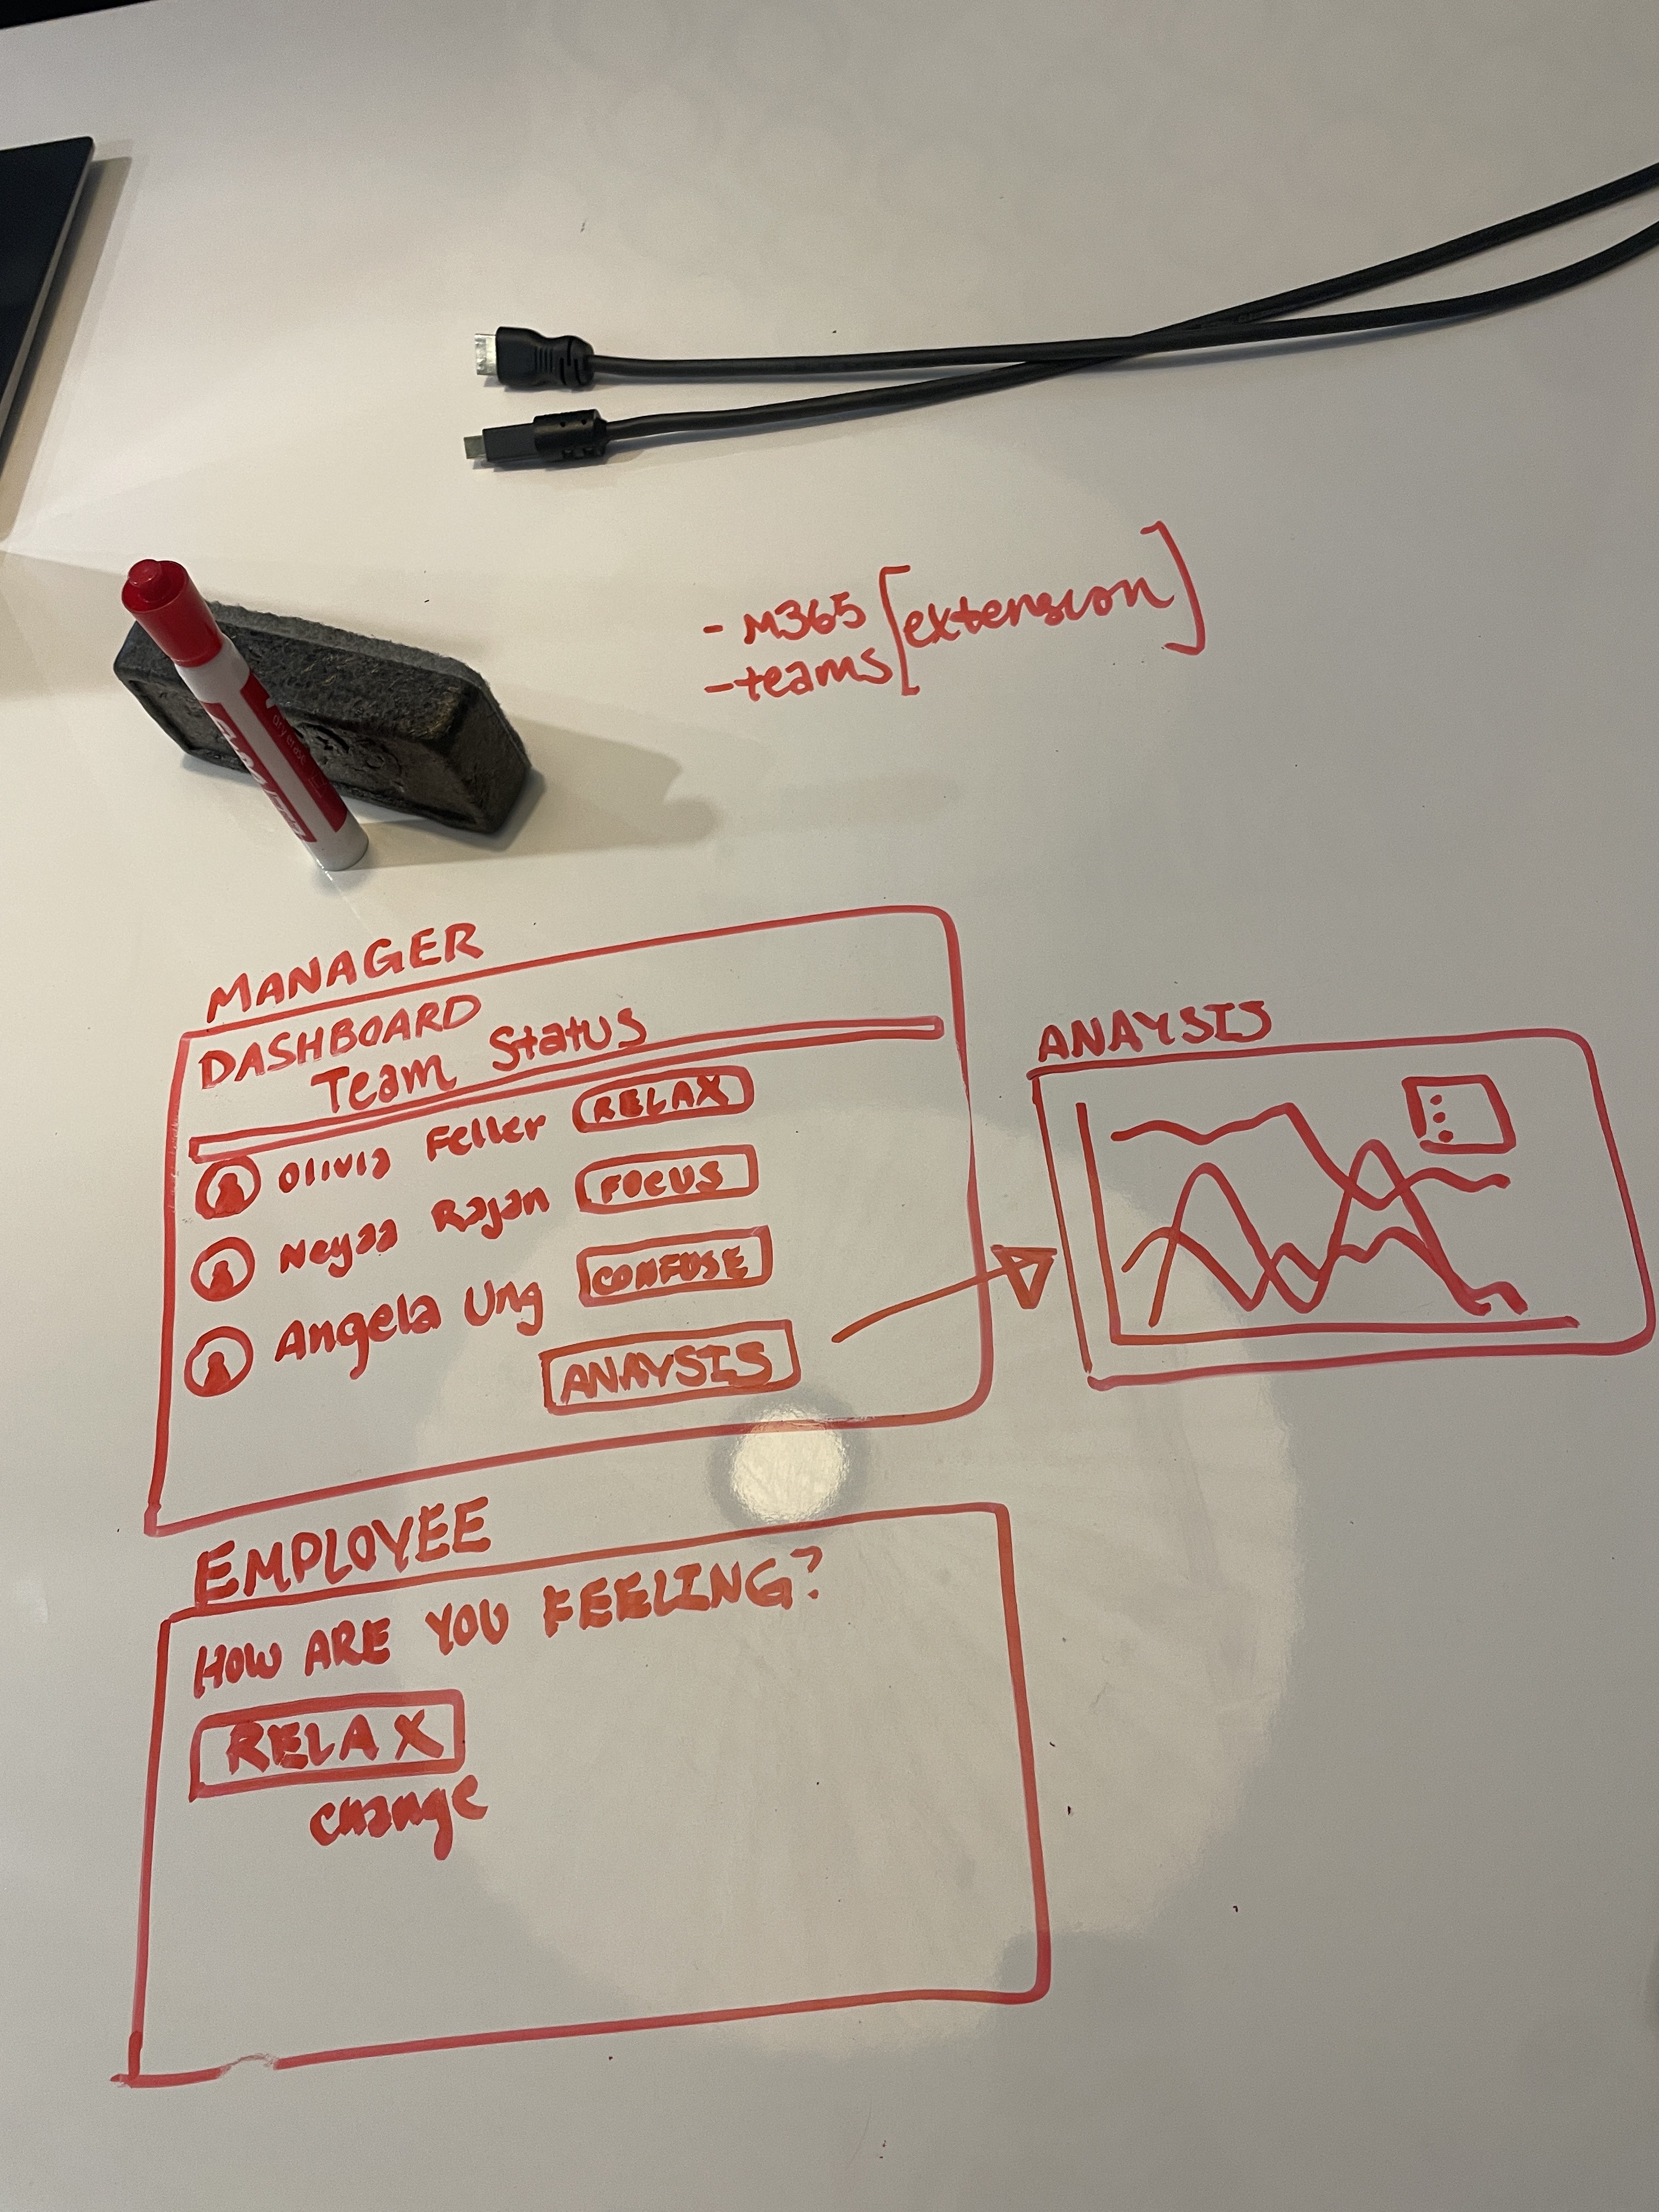 - M365 [extension]
- teams
MANAGER
DASHBOARD
Team Status
Olivia Feller RELAX
Neyaa Rajan FOCUS
Angela Ung CONFUSE
ANAYSIS
ANAYSIS
EMPLOYEE
HOW ARE YOU FEELING?
RELAX
change